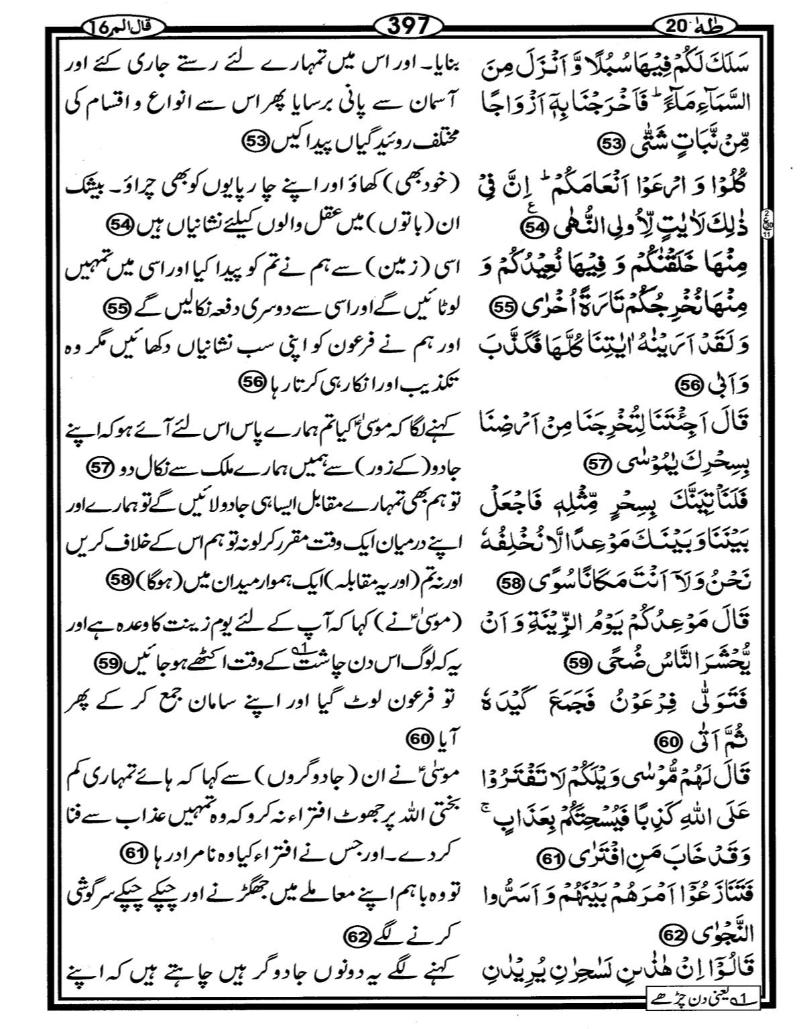 طٰهٰ 20
397
قال الم 16
سَلَكَ لَكُمْ فِيْهَا سُبُلًا وَّاَنْزَلَ مِنَ
السَّمَآءِ مَآءً ؕ فَاَخْرَجْنَا بِهٖۤ اَزْوَاجًا
مِّنْ نَّبَاتٍ شَتّٰى 53
كُلُوْا وَ ارْعَوْا اَنْعَامَكُمْ ؕ اِنَّ فِيْ
ذٰلِكَ لَاٰيٰتٍ لِّاُولِى النُّهٰى 54 ع
مِنْهَا خَلَقْنٰكُمْ وَ فِيْهَا نُعِيْدُكُمْ وَ
مِنْهَا نُخْرِجُكُمْ تَارَةً اُخْرٰى 55
وَ لَقَدْ اَرَيْنٰهُ اٰيٰتِنَا كُلَّهَا فَكَذَّبَ
وَ اَبٰى 56
قَالَ اَجِئْتَنَا لِتُخْرِجَنَا مِنْ اَرْضِنَا
بِسِحْرِكَ يٰمُوْسٰى 57
فَلَنَاْتِيَنَّكَ بِسِحْرٍ مِّثْلِهٖ فَاجْعَلْ
بَيْنَنَا وَ بَيْنَكَ مَوْعِدًا لَّا نُخْلِفُهٗ
نَحْنُ وَ لَاۤ اَنْتَ مَكَانًا سُوًى 58
قَالَ مَوْعِدُكُمْ يَوْمُ الزِّيْنَةِ وَ اَنْ
يُّحْشَرَ النَّاسُ ضُحًى 59
فَتَوَلّٰى فِرْعَوْنُ فَجَمَعَ كَيْدَهٗ
ثُمَّ اَتٰى 60
قَالَ لَهُمْ مُّوْسٰى وَيْلَكُمْ لَا تَفْتَرُوْا
عَلَى اللّٰهِ كَذِبًا فَيُسْحِتَكُمْ بِعَذَابٍ ۚ
وَ قَدْ خَابَ مَنِ افْتَرٰى 61
فَتَنَازَعُوْۤا اَمْرَهُمْ بَيْنَهُمْ وَ اَسَرُّوا
النَّجْوٰى 62
قَالُوْۤا اِنْ هٰذٰىنِ لَسٰحِرٰنِ يُرِيْدٰنِ
بنایا۔ اور اس میں تمہارے لئے رستے جاری کئے اور
آسمان سے پانی برسایا پھر اس سے انواع و اقسام کی
مختلف روئیدگیاں پیدا کیں 53
(خود بھی) کھاؤ اور اپنے چارپایوں کو بھی چراؤ۔ بیشک
ان (باتوں) میں عقل والوں کیلئے نشانیاں ہیں 54
اسی (زمین) سے ہم نے تم کو پیدا کیا اور اسی میں تمہیں
لوٹائیں گے اور اسی سے دوسری دفعہ نکالیں گے 55
اور ہم نے فرعون کو اپنی سب نشانیاں دکھائیں مگر وہ
تکذیب اور انکار ہی کرتا رہا 56
کہنے لگا کہ موسیٰؑ کیا تم ہمارے پاس اس لئے آئے ہو کہ اپنے
جادو (کے زور) سے ہمیں ہمارے ملک سے نکال دو 57
تو ہم بھی تمہارے مقابل ایسا ہی جادو لائیں گے تو ہمارے اور
اپنے درمیان ایک وقت مقرر کر لو نہ تو ہم اس کے خلاف کریں
اور نہ تم (اور یہ مقابلہ) ایک ہموار میدان میں (ہوگا) 58
(موسیٰؑ نے) کہا کہ آپ کے لئے یوم زینت کا وعدہ ہے اور
یہ کہ لوگ اس دن چاشت1؎ کے وقت اکٹھے ہو جائیں 59
تو فرعون لوٹ گیا اور اپنے سامان جمع کر کے پھر
آیا 60
موسیٰؑ نے ان (جادوگروں) سے کہا کہ ہائے تمہاری کم
بختی اللہ پر جھوٹ افتراء نہ کرو کہ وہ تمہیں عذاب سے فنا
کر دے۔ اور جس نے افتراء کیا وہ نامراد رہا 61
تو وہ باہم اپنے معاملے میں جھگڑنے اور چپکے چپکے سرگوشی
کرنے لگے 62
کہنے لگے یہ دونوں جادوگر ہیں چاہتے ہیں کہ اپنے
1؎ یعنی دن چڑھے